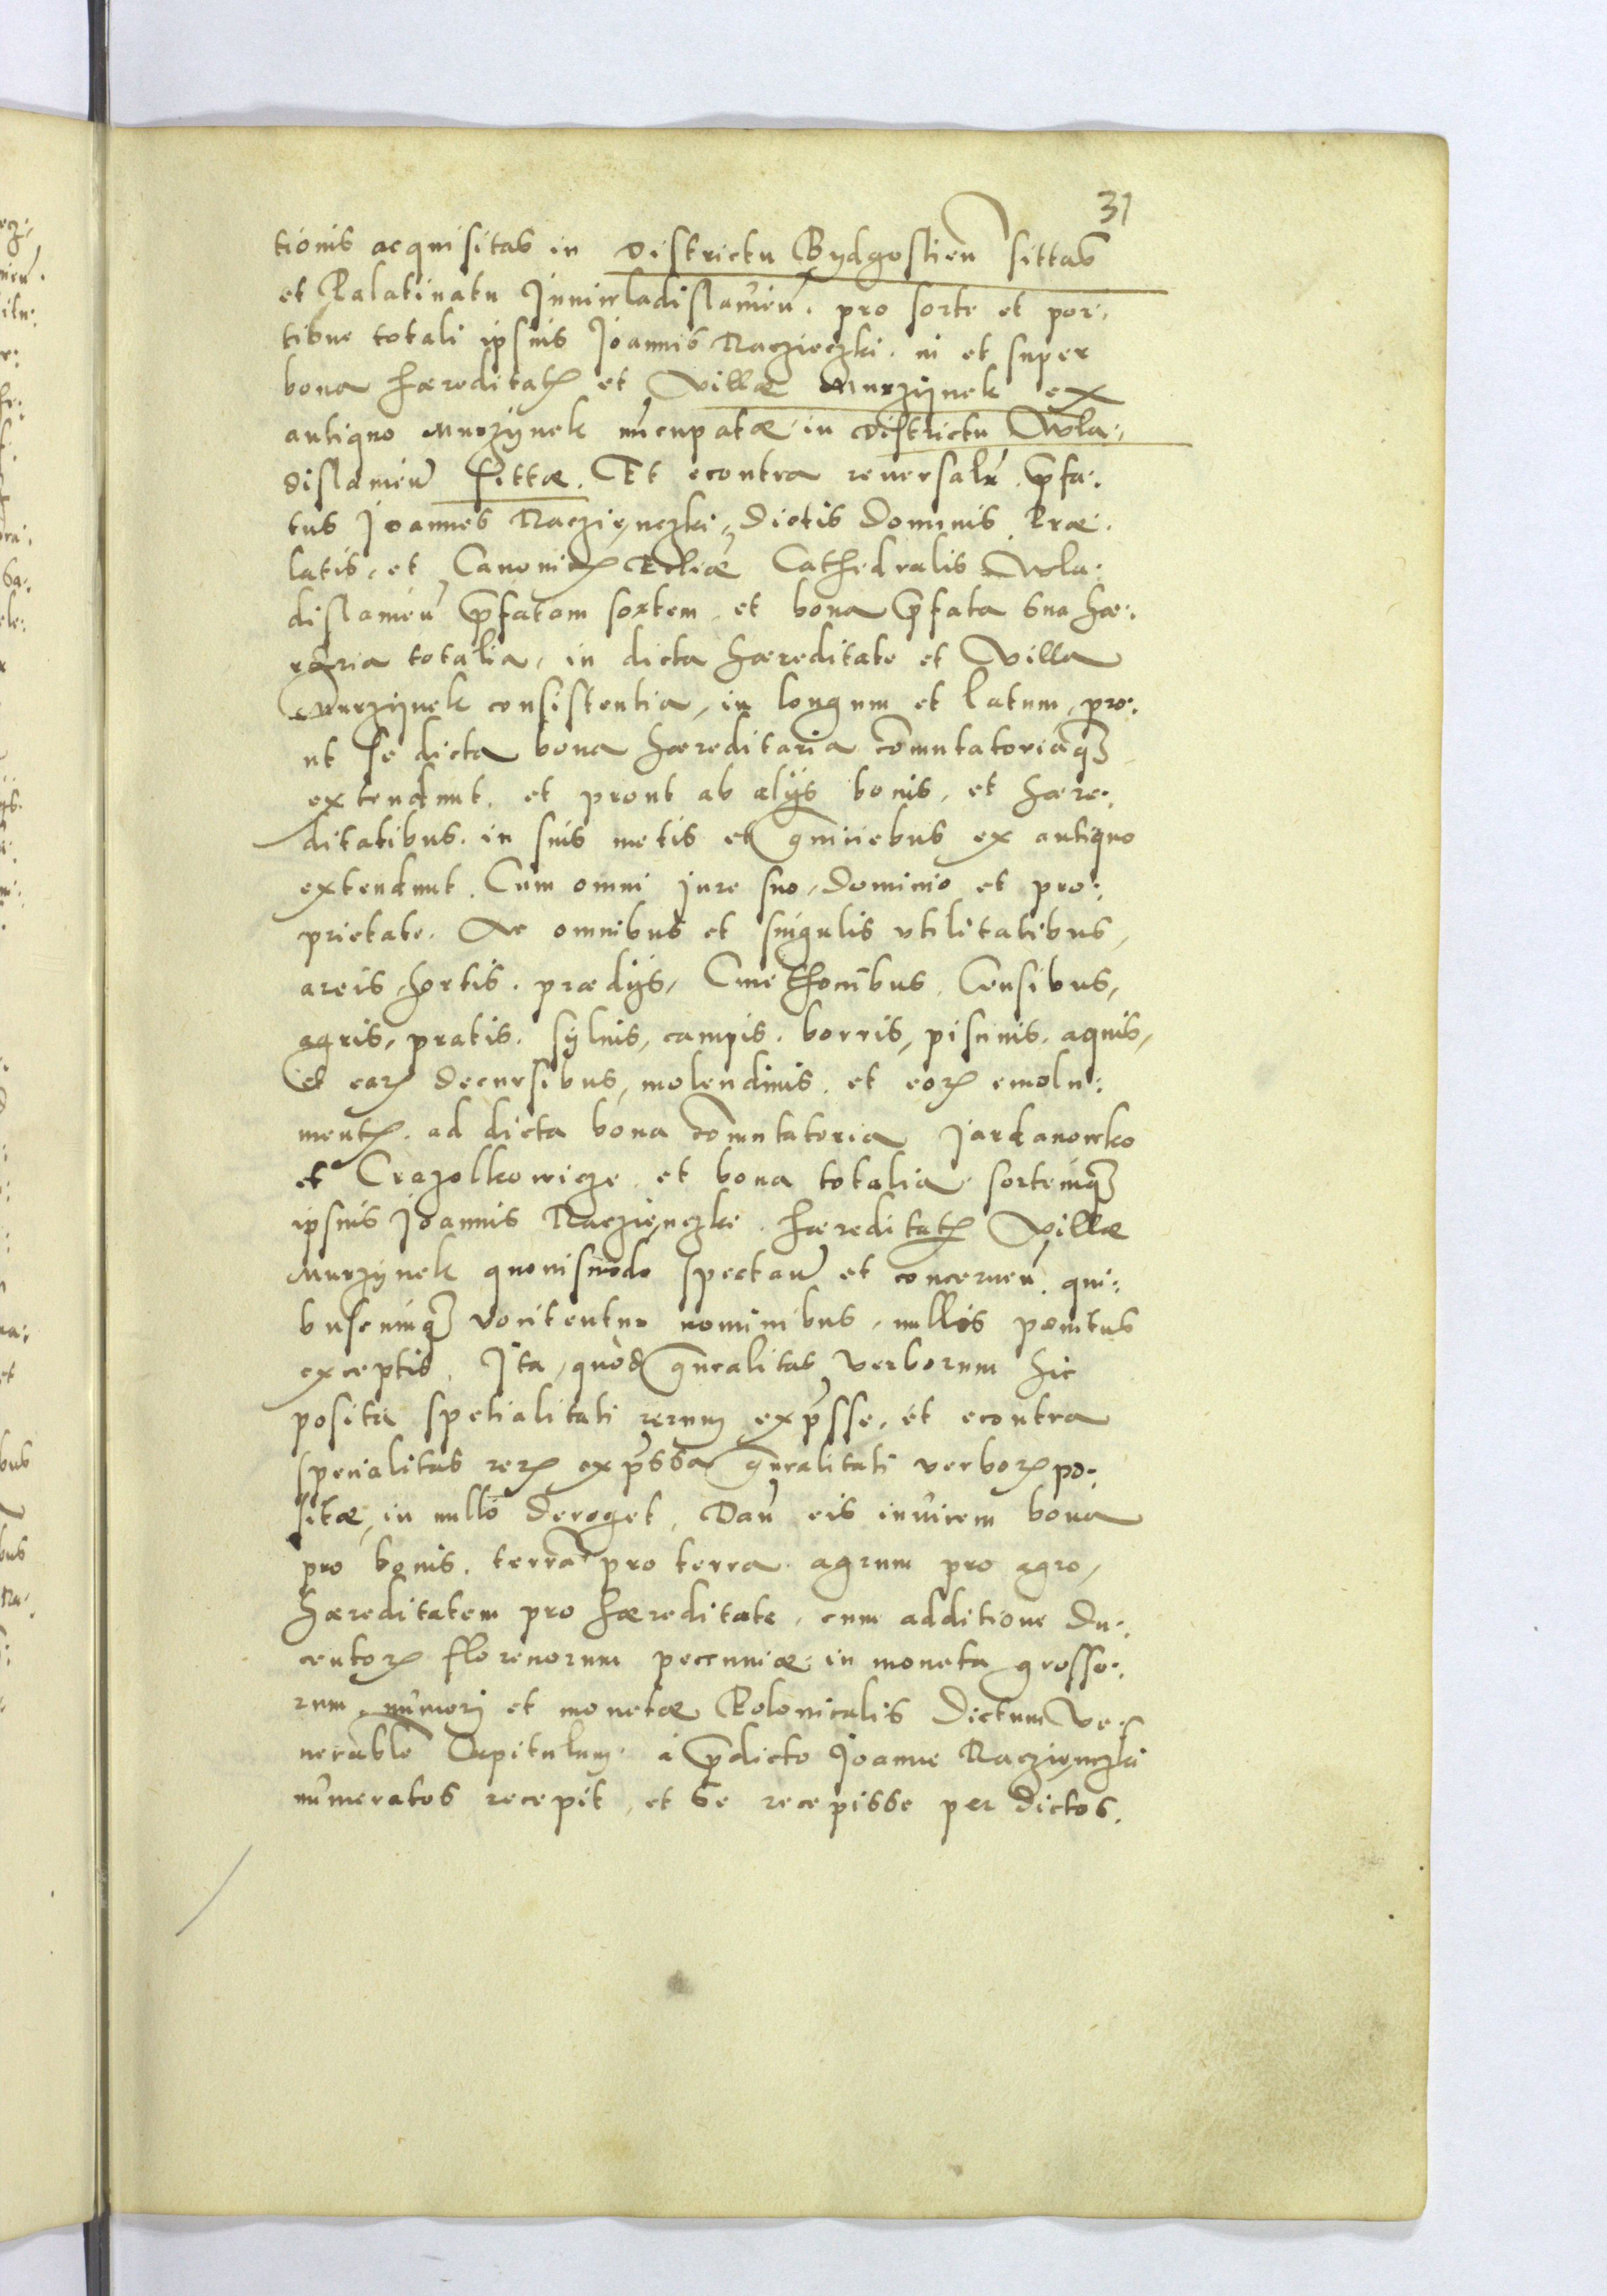 31
tionis acquisitas in Districtu Bydgostien̄ sittas
et Palatinatu Juniwladislauien̄. pro sorte et por:
tione totali ipsius Joannis Raczięczki. in et super
bona hæreditatꝭ et Villæ Murzijnek ex
antiquo Murzijnek nūcupatæ in Districtu Wla:
dislauien̄ sittæ. Et econtra reuersalr̄ p̄fa:
tus Joannes Raczięnczki, dictis Dominis Præ:
latis, et Canonicꝭ Eccliæ Cathedralis Wla:
dislauien̄ p̄fatam sortem, et bona p̄fata sua hæ:
raria totalia, in dicta hæreditate et Villa
Murzijnek consistentia, in longum et latum, pro:
ut se dicta bona hæreditaria com̄utatoriaqꝫ
extendunt, et prout ab alijs bonis, et hære:
ditatibus in suis metis et gr̄niciebus ex antiquo
extendunt. Cum omni jure suo, Dominio et pro:
prietate. Ac omnibus et singulis vtilitatibus,
areis, hortis, prædijs, Cmethonibus, Censibus,
agris, pratis, syluis, campis, borris, piscinis, aquis,
et earꝝ decursibus, molendinis, et eorꝝ emolu:
mentꝭ. ad dicta bona com̄utatoria Jardanowko
et Crczolkowicze et bona totalia sortemqꝫ
ipsius Joannis Raczięnczki hæreditatꝭ Villæ
Murzijnek quouismodo spectan̄ et concernen̄. qui:
buscunqꝫ vocitentur nominibus, nullis pænitus
exceptis. Ita, quòd gn̄ralitas verborum hic
posita spetialitati rerum exp̄sse, et econtra
specialitas rerꝝ exp̄ssa gn̄ralitati verborꝝ po:
sitæ, in nullo deroget. Dan̄ eis inuicem bona
pro bonis, terrā pro terra, agrum pro agro,
hæreditatem pro hæreditate, cum additione du:
centorꝝ florenorum peccuniæ in moneta grosso:
rum, numeri et monetæ Polonicalis dictum Ve:
nerabile Capitulum à p̄dicto Joanne Raczięnczki
numeratos recepit, et se recepisse per dictos.